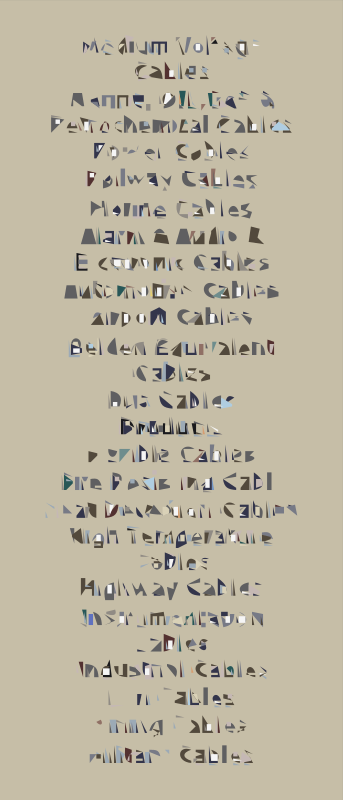 Medium Voltage
Cables
Marine, Oil, Gas &
Petrochemical Cables
Power Cables
Railway Cables
Marine Cables
Alarm & Audio &
Electronic Cables
Automotive Cables
Airport Cables
Belden Equivalent
Cables
Bus Cables
Products
Flexible Cables
Fire Resisting Cable
Leak Detection Cables
High Temperature
Cables
Highway Cables
Instrumentation
Cables
Industrial Cables
Cables
Mining Cables
Military Cables